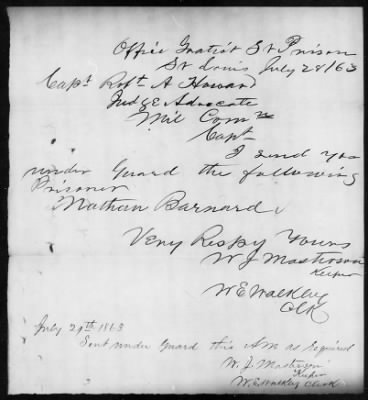 Office Gratiot St Prison
St Louis July 28/63
Capt Robt A Howard
Judge Advocate
Mil Com
Capt
I send you
under Guard the following
Prisoner
Nathan Barnard
Very Respy Yours
W J Masterson
Keeper
W E Walkley
Clk
July 29th 1863
Sent under Guard this AM as required
W. J. Masterson
Keeper
W. E. Walkley Clerk